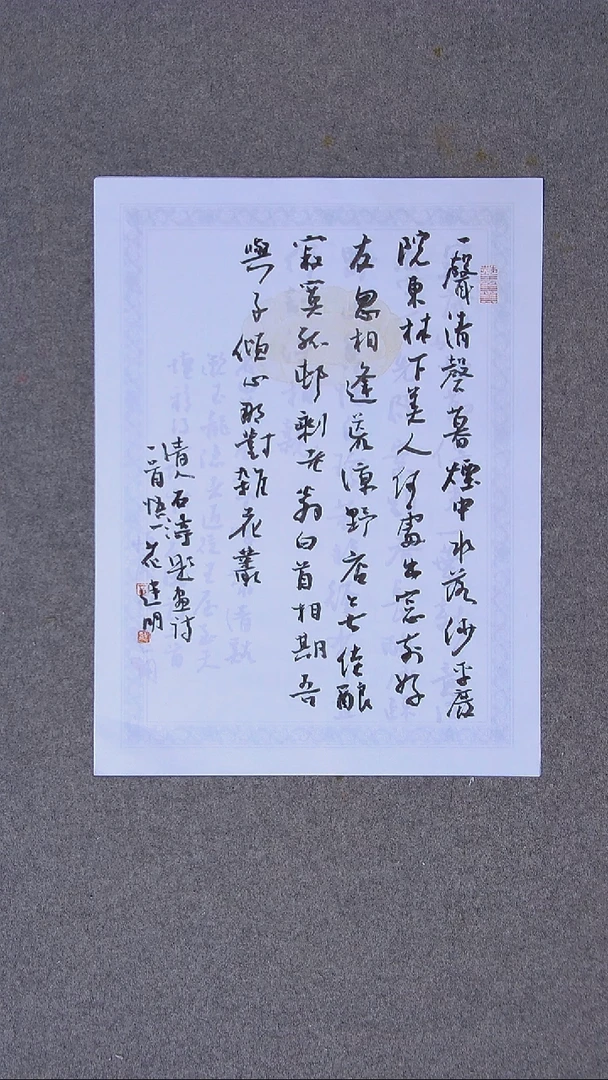 一聲清磬暮煙中水落沙平屧
院東林下美人何處出窓前好
友忽相逢荒涼野店無佳釀
寂寞孤邨剩老翁白首相期吾
與子傾心那對雜花叢
清人石濤題畫诗
一首悟一花建明